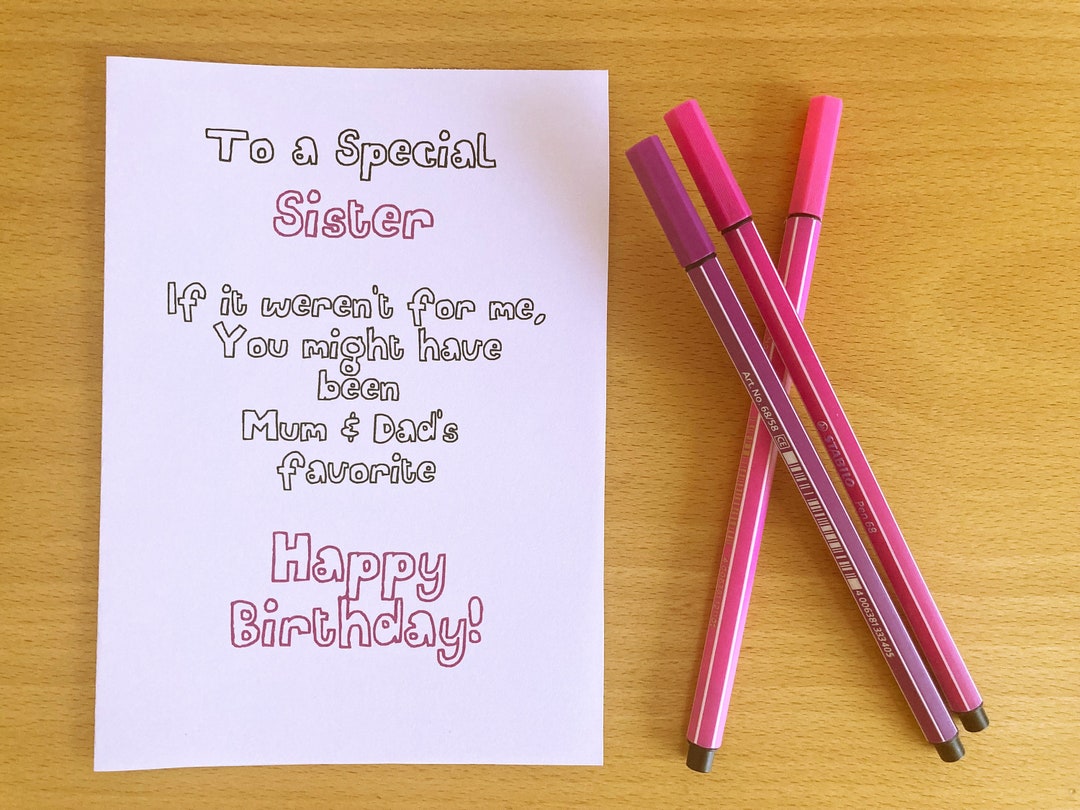 To a Special
Sister
If it weren't for me,
You might have
been
Mum & Dad's
favorite
Happy
Birthday!
Art. No. 68/58 CE
4 006381 333405
STABILO Pen 68